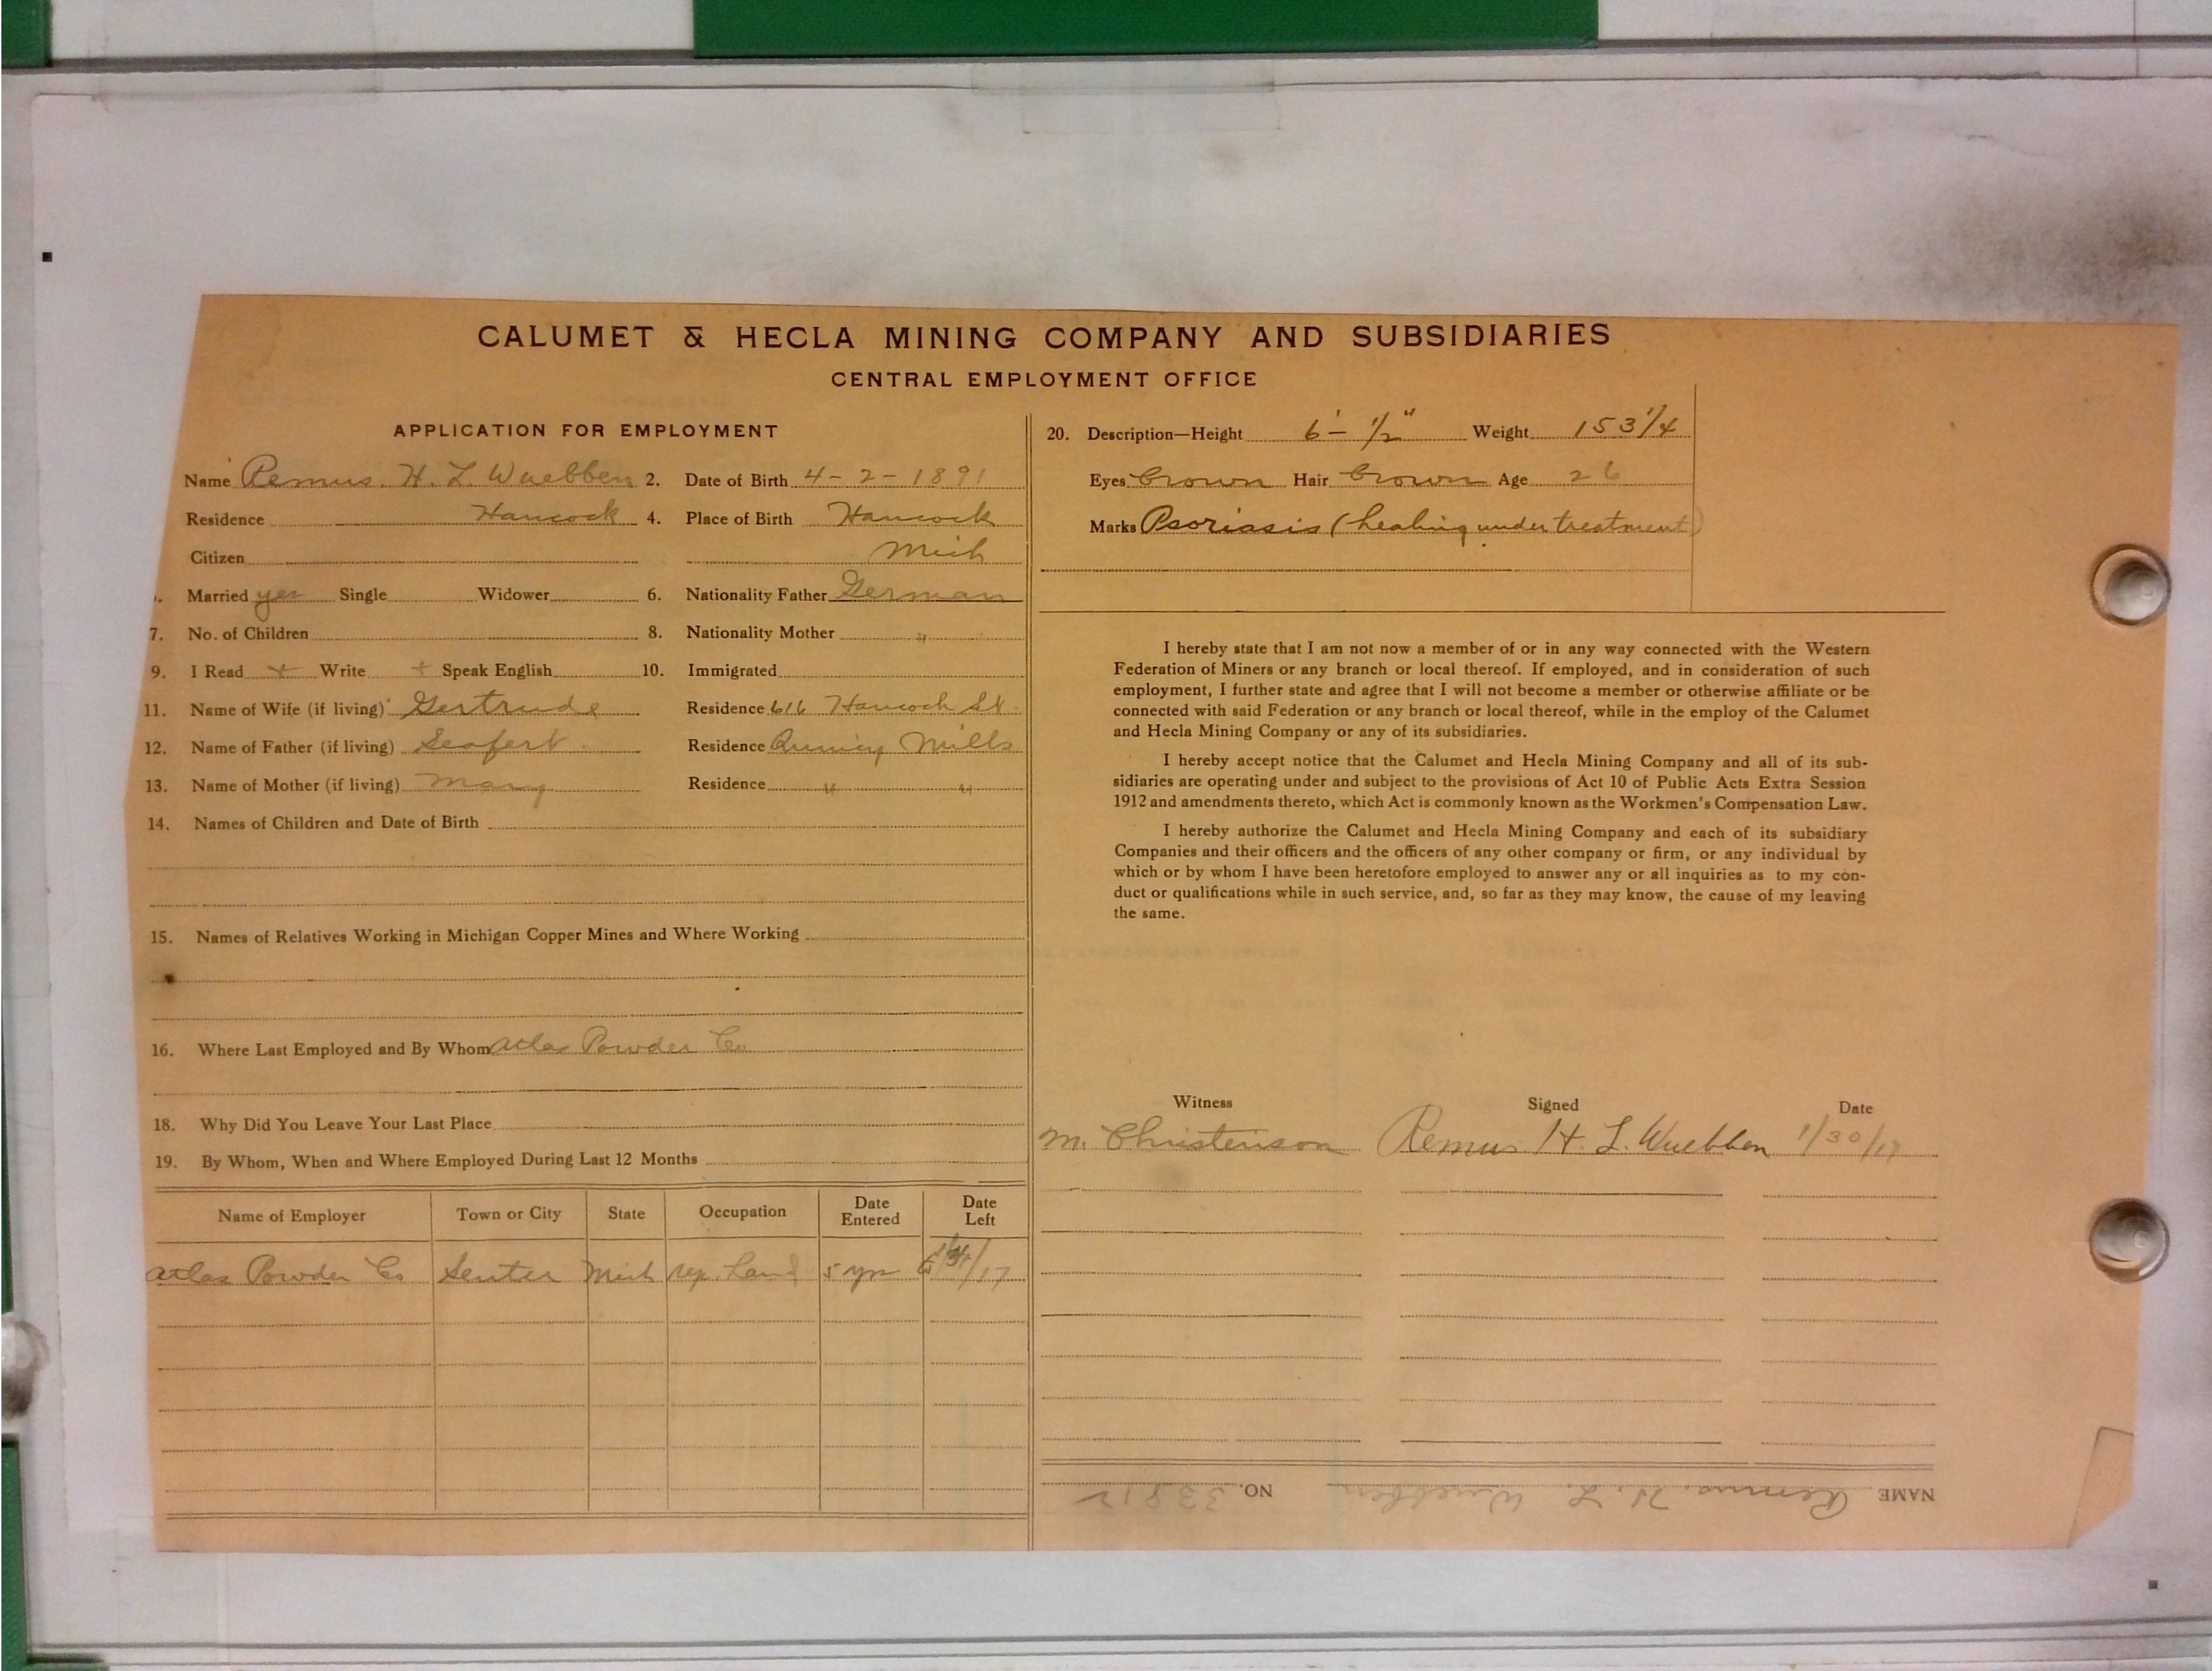 CALUMET & HECLA MINING COMPANY AND SUBSIDIARIES
CENTRAL EMPLOYMENT OFFICE
APPLICATION FOR EMPLOYMENT
Name Remus. H. L. Wuebben 2. Date of Birth 4-2-1891
Residence Hancock 4. Place of Birth Hancock
Citizen Mich
Married yes Single Widower 6. Nationality Father German
7. No. of Children 8. Nationality Mother "
9. I Read + Write + Speak English 10. Immigrated
11. Name of Wife (if living) Gertrude Residence 616 Hancock St.
12. Name of Father (if living) Seafert Residence Quincy Mills
13. Name of Mother (if living) Mary Residence " "
14. Names of Children and Date of Birth
15. Names of Relatives Working in Michigan Copper Mines and Where Working
16. Where Last Employed and By Whom Atlas Powder Co
18. Why Did You Leave Your Last Place
19. By Whom, When and Where Employed During Last 12 Months
Name of Employer Town or City State Occupation Date Entered Date Left
Atlas Powder Co Senter Mich rep. hand 5 yrs /17
20. Description—Height 6'- 1/2" Weight 153 1/4
Eyes Brown Hair Brown Age 26
Marks Psoriasis (healing under treatment)
I hereby state that I am not now a member of or in any way connected with the Western
Federation of Miners or any branch or local thereof. If employed, and in consideration of such
employment, I further state and agree that I will not become a member or otherwise affiliate or be
connected with said Federation or any branch or local thereof, while in the employ of the Calumet
and Hecla Mining Company or any of its subsidiaries.
I hereby accept notice that the Calumet and Hecla Mining Company and all of its sub-
sidiaries are operating under and subject to the provisions of Act 10 of Public Acts Extra Session
1912 and amendments thereto, which Act is commonly known as the Workmen's Compensation Law.
I hereby authorize the Calumet and Hecla Mining Company and each of its subsidiary
Companies and their officers and the officers of any other company or firm, or any individual by
which or by whom I have been heretofore employed to answer any or all inquiries as to my con-
duct or qualifications while in such service, and, so far as they may know, the cause of my leaving
the same.
Witness Signed Date
M. Christenson Remus H. L. Wuebben 1/30/17
NAME Remus. H. L. Wuebben NO. 33812